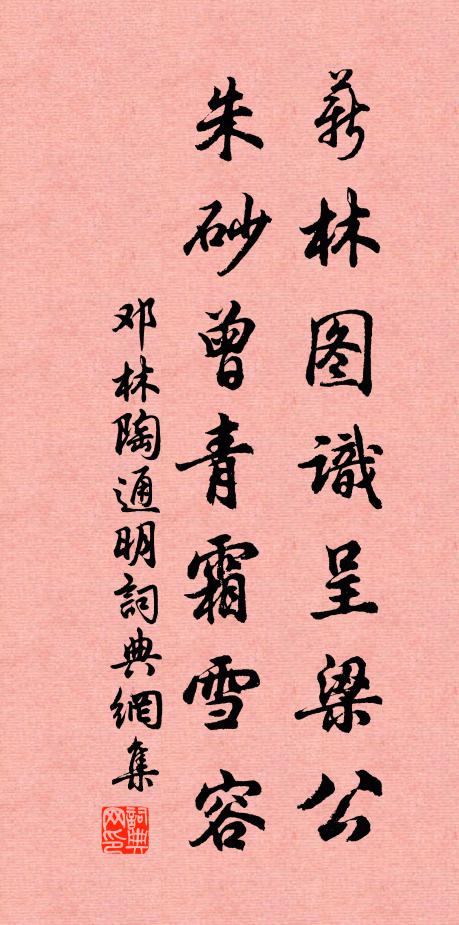 新林图識呈梁公
朱砂曾青霜雪容
邓林陶通明詞典網集
詞典网印